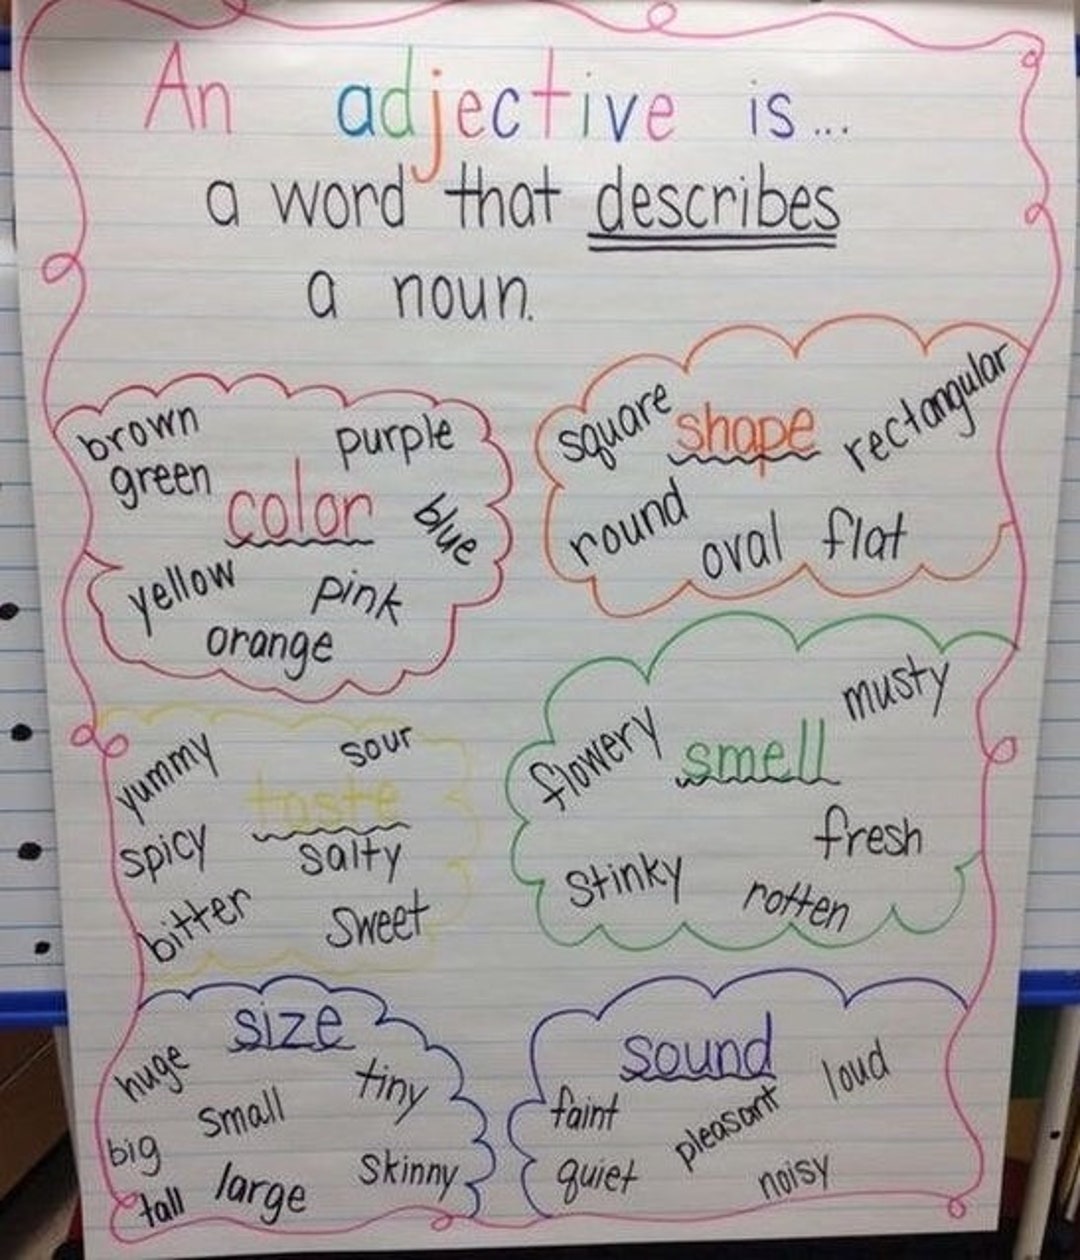 An adjective is...
a word that describes
a noun.
color
brown
purple
green
blue
yellow
pink
orange
shape
square
rectangular
round
oval
flat
taste
yummy
sour
spicy
salty
bitter
sweet
smell
flowery
musty
fresh
stinky
rotten
size
huge
tiny
small
big
skinny
tall
large
sound
loud
faint
pleasant
quiet
noisy